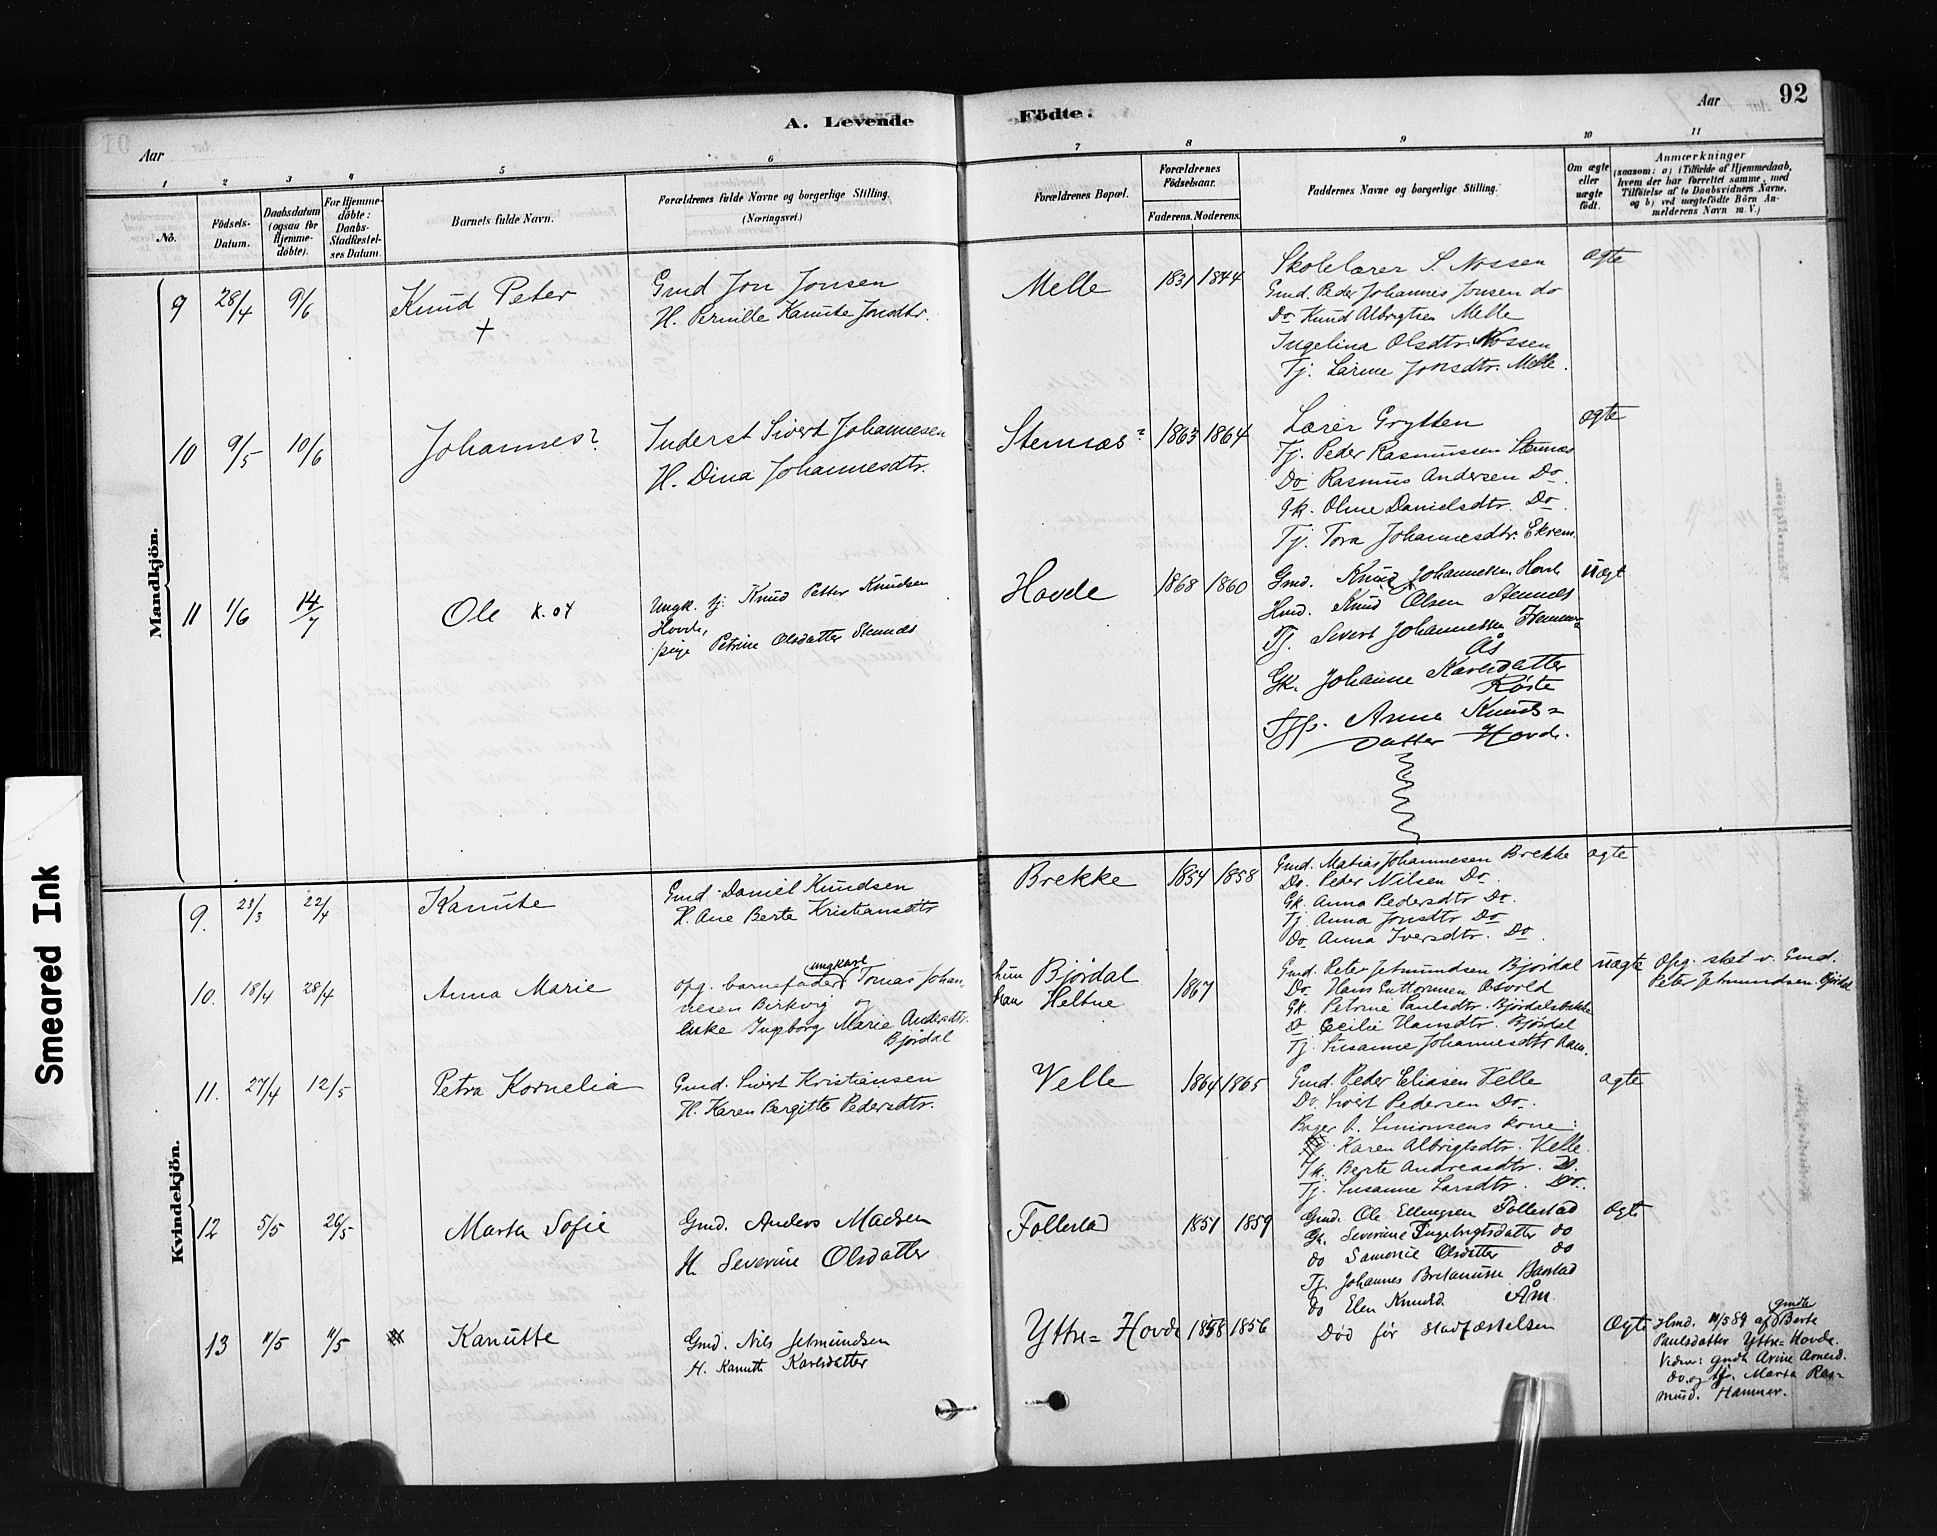 A. Levende Födte.
Aar
Aar
92
1 2 3 4 5 6 7 8 9 10 11
No.
Födsels-Datum.
Daabsdatum (ogsaa for Hjemme-döbte).
For Hjemme-döbte: Daabs-Stadfæstel-ses Datum
Barnets fulde Navn.
Forældrenes fulde Navne og borgerlige Stilling.
(Næringsvei.)
Forældrenes Bopæl.
Forældrenes Födselsaar.
Faderens. Moderens.
Faddernes Navne og borgerlige Stilling.
Om ægte eller uægte födt.
Anmærkninger
(saasom: a) i Tilfælde af Hjemmedaab,
hvem der har forrettet samme, med
Tilföielse af to Daabsvidners Navne,
og b) ved uægtefödte Börn An-
melderens Navn m. V.)
Mandkjön.
9 28/4 9/6 Knud Peter +
Gmd Jon Jonsen
H. Pernille Kanute Jonsdtr.
Melle 1831 1844
Skolelærer S. Nossen
Gmd. Peder Johannes Jonsen do
Do Knud Albrigtsen Melle
Ingelina Olsdtr. Nossen
Tj. Larine Jonsdtr. Melle.
ægte
10 9/5 10/6 Johannes?
Inderst Sivert Johannesen
H. Dina Johannesdtr.
Stennæs 1863 1864
Lærer Grytten
Tj. Peder Rasmussen Stennæs
Do Rasmus Andersen Do.
Gk. Oline Danielsdtr. Do.
Tj. Tora Johannesdtr. Ekrem.
ægte
11 1/6 14/7 Ole K. 04
Ungk. tj. Knud Petter Knudsen
Hovde,
pige Petrine Olsdatter Stennes
Hovde 1868 1860
Gmd. Knud Johannessen Hovde
Hmd. Knud Olsen Stennes
Tj. Sivert Johannessen
Ås
Gk. Johanne Karlsdatter
Røste
Anna Knuds=
datter Hovde.
Uægt
Kvindekjön.
9. 23/3 22/4 Kanute
Gmd Daniel Knudsen
H. Ane Berte Kristiansdtr
Brekke 1854 1858
Gmd. Matias Johannesen Brekke
Do. Peder Nilsen Do.
Gk. Anna Pedersdtr Do.
Tj. Anna Jonsdtr Do
Do. Anna Iversdtr. Do.
ægte
10. 18/4 28/4 Anna Marie
opg. barnefader ungkarl Tomas Johan-
nesen Birkvig og
enke Ingeborg Marie Andersdtr.
Bjørdal
hun Bjørdal
han Heltne
1867
Gmd. Peter Jetmundsen Bjørdal
Do. Hans Guttormsen Osvold
Gk. Petrine Paulsdtr. Bjørdalsbakke
Do Cecilie Hansdtr. Bjørdal
Tj. Susanne Johannesdtr Aam.
uægte
Opg. sket v. Gmd.
Peter Jetmundsen Bjørdal
11. 27/4 12/5 Petra Kornelia
Gmd. Sivert Kristiansen
H. Karen Bergitte Pedersdtr.
Velle 1864 1865
Gmd. Peder Eliasen Velle
Do. Sivert Pedersen Do.
Bager P. Simonsens kone:
Karen Albrigtsdtr. Velle.
Gk. Berte Andreasdtr. D.
Tj. Susanne Larsdtr. Do.
ægte
12 5/5 26/5 Marta Sofie
Gmd. Anders Madsen
H. Severine Olsdatter
Follestad 1851 1859
Gmd. Ole Ellingsen Follestad
Gk. Severine Ingebrigtsdatter do
do Samonie Olsdatter do
Tj. Johannes Baastad
do Elen Knudsd. Åm
Ægte
13 11/5 11/5 Kanutte
Gmd. Nils Jetmundsen
H. Kanutte Karlsdatter
Yttre=Hovde 1858 1856
Død før stadfæstelsen
Ægte
Hmd. 11/5 89 af gmdk Berte
Paulsdatter Yttre=Hovde.
Vidner: gmdk Anne Arnesd.
do. og tj. Marta Ras=
musd. Hamner.
Smeared Ink